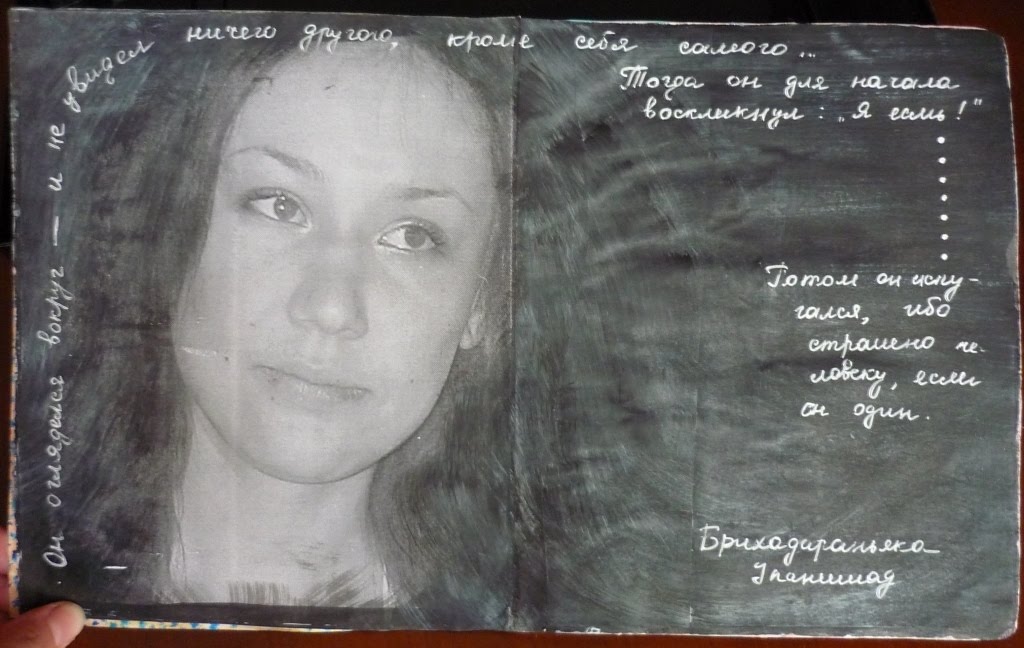 Он огляделся вокруг — и не увидел
ничего другого, кроме себя самого...
Тогда он для начала
воскликнул: „Я есмь!"
Потом он испу-
гался, ибо
страшно че-
ловеку, если
он один.
Брихадараньяка
Упанишад